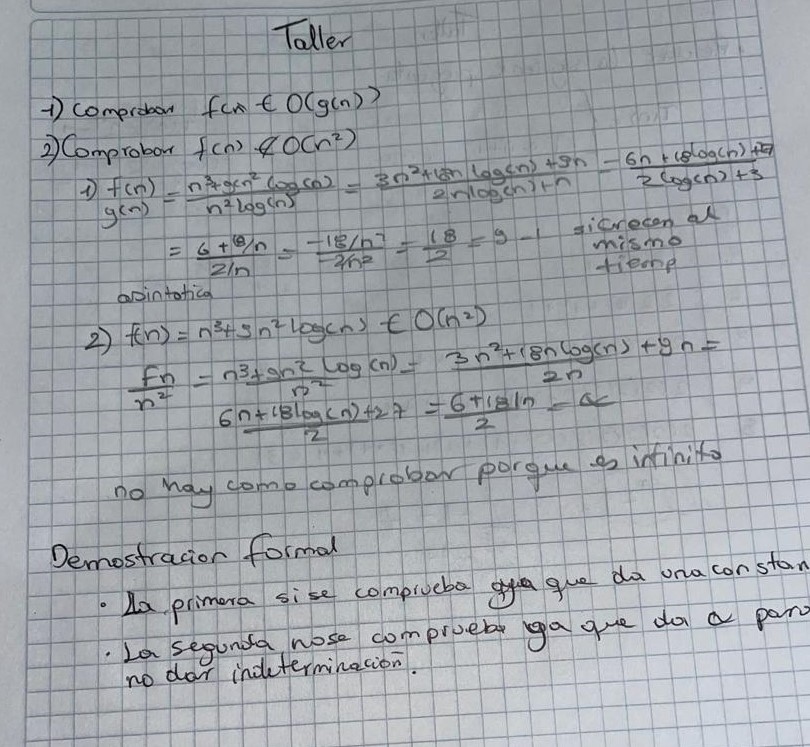 Taller
1) Comprobar f(n) ∈ O(g(n))
2) Comprobar f(n) ∉ O(n²)
1) f(n)/g(n) = n³+9n² log(n)/n² log(n) = 3n²+18n log(n)+9n/2n log(n)+n = 6n+18log(n)+27/2log(n)+3
= 6+18/n/2/n = -18/n²/-2/n² = 18/2 = 9 - 1 si crecen al
mismo
tiemp
asintotica
2) f(n) = n³+9n² log(n) ∈ O(n²)
fn/n² = n³+9n² log(n)/n² = 3n²+18n log(n)+9n/2n =
6n+18log(n)+27/2 = 6+18/n/2 = ∝
no hay como comprobar porque es infinito
Demostracion formal
· La primera si se comprueba ya que da una constan
· La segunda no se comprueba ya que da ∝ para
no dar indeterminación.